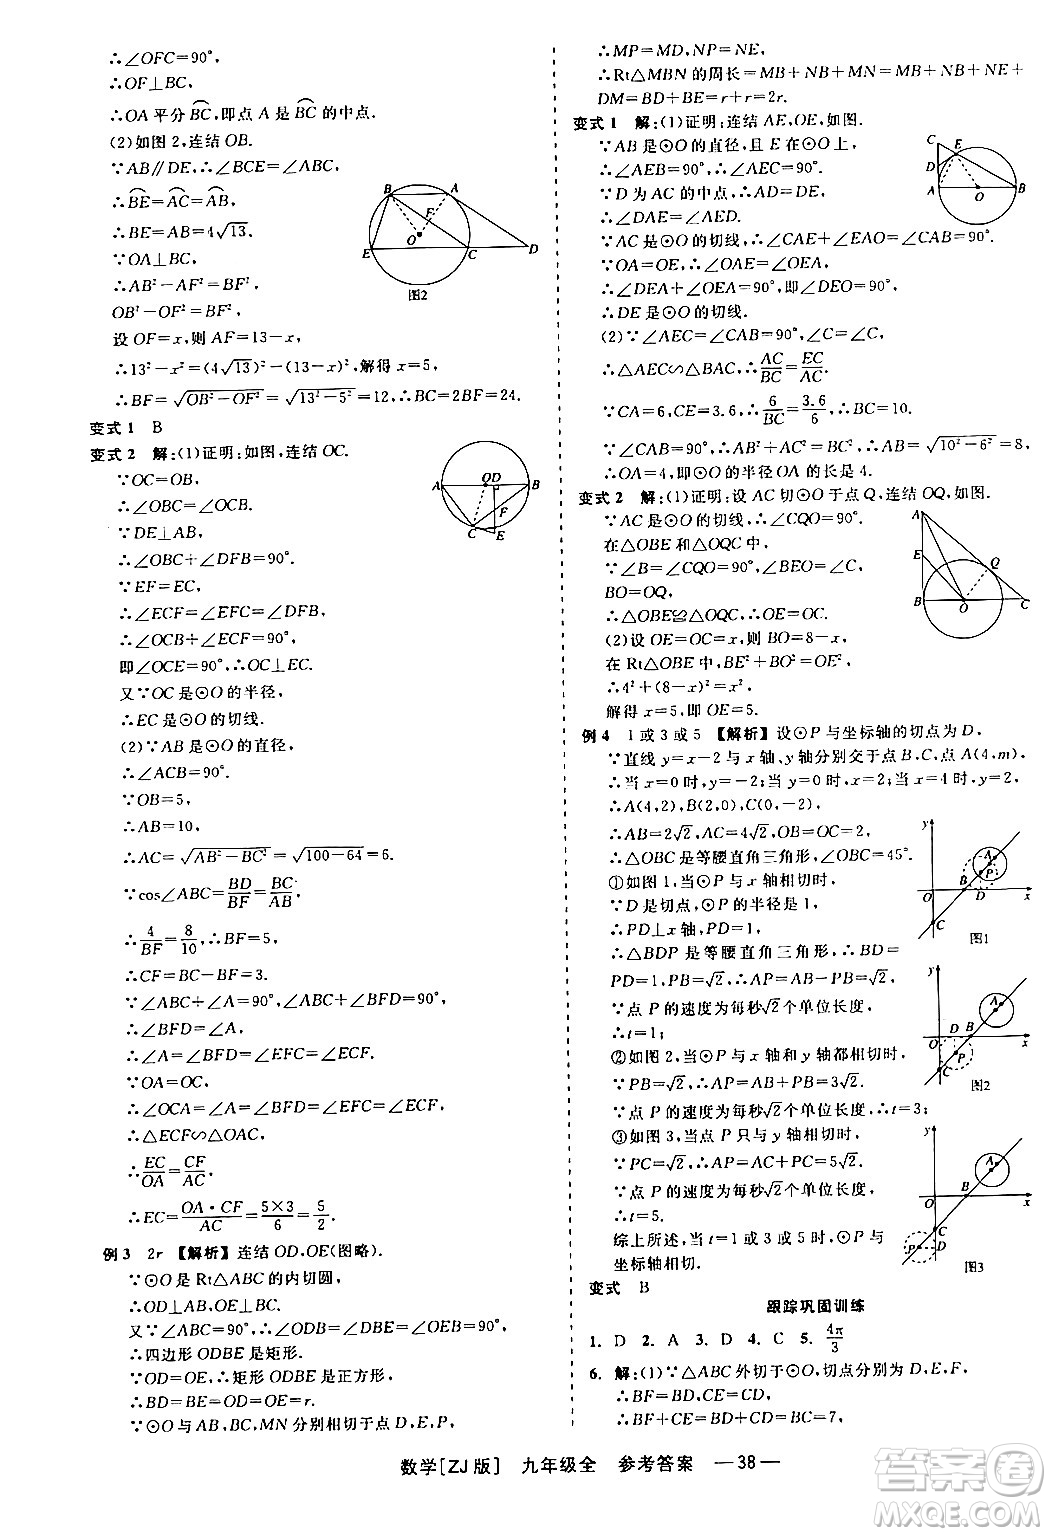 ∴∠OFC=90°,
∴OF⊥BC,
∴OA 平分 BC,即点 A 是 BC 的中点.
(2)如图 2,连结 OB.
∵AB∥DE,∴∠BCE=∠ABC,
∴BE=AC=AB,
∴BE=AB=4√13.
∵OA⊥BC,
∴AB²-AF²=BF²,
OB²-OF²=BF².
设 OF=x,则 AF=13-x,
∴13²-x²=(4√13)²-(13-x)²,解得 x=5,
∴BF=√OB²-OF²=√13²-5²=12,∴BC=2BF=24.
B A F O E C D
图2
变式 1 B
变式 2 解:(1)证明:如图,连结 OC.
∵OC=OB,
∴∠OBC=∠OCB.
∵DE⊥AB,
∴∠OBC+∠DFB=90°.
∵EF=EC,
∴∠ECF=∠EFC=∠DFB,
∴∠OCB+∠ECF=90°,
即∠OCE=90°,∴OC⊥EC.
又∵OC 是⊙O 的半径,
∴EC 是⊙O 的切线.
(2)∵AB 是⊙O 的直径,
∴∠ACB=90°.
∵OB=5,
∴AB=10,
∴AC=√AB²-BC²=√100-64=6.
∵cos∠ABC=BD/BF=BC/AB,
∴4/BF=8/10,∴BF=5,
∴CF=BC-BF=3.
∵∠ABC+∠A=90°,∠ABC+∠BFD=90°,
∴∠BFD=∠A,
∴∠A=∠BFD=∠EFC=∠ECF.
∵OA=OC,
∴∠OCA=∠A=∠BFD=∠EFC=∠ECF,
∴△ECF∽△OAC,
∴EC/OA=CF/AC,
∴EC=OA·CF/AC=5×3/6=5/2.
A OD B F C E
例 3 2r 【解析】连结 OD,OE(图略).
∵⊙O 是 Rt△ABC 的内切圆,
∴OD⊥AB,OE⊥BC.
又∵∠ABC=90°,∴∠ODB=∠DBE=∠OEB=90°,
∴四边形 ODBE 是矩形.
∵OD=OE,∴矩形 ODBE 是正方形,
∴BD=BE=OD=OE=r.
∵⊙O 与 AB,BC,MN 分别相切于点 D,E,P,
∴MP=DM,NP=NE,
∴Rt△MBN 的周长=MB+NB+MN=MB+BN+NE+
DM=BD+BE=r+r=2r.
变式 1 解:(1)证明:连结 AE,OE,如图.
∵AB 是⊙O 的直径,且 E 在⊙O 上,
∴∠AEB=90°,∴∠AEC=90°.
∵D 为 AC 的中点,∴AD=DE,
∴∠DAE=∠AED.
∵AC 是⊙O 的切线,∴∠CAE+∠EAO=∠CAB=90°.
∵OA=OE,∴∠OAE=∠OEA,
∴∠DEA+∠OEA=90°,即∠DEO=90°,
∴DE 是⊙O 的切线.
(2)∵∠AEC=∠CAB=90°,∠C=∠C,
∴△AEC∽△BAC,∴AC/BC=EC/AC.
∵CA=6,CE=3.6,∴6/BC=3.6/6,∴BC=10.
∵∠CAB=90°,∴AB²+AC²=BC²,∴AB=√10²-6²=8,
∴OA=4,即⊙O 的半径 OA 的长是 4.
C E D A O B
变式 2 解:(1)证明:设 AC 切⊙O 于点 Q,连结 OQ,如图.
∵AC 是⊙O 的切线,∴∠CQO=90°.
在△OBE 和△OQC 中,
∵∠B=∠CQO=90°,∠BEO=∠C,
BO=OQ,
∴△OBE≌△OQC,∴OE=OC.
(2)设 OE=OC=x,则 BO=8-x,
在 Rt△OBE 中,BE²+BO²=OE²,
∴4²+(8-x)²=x²,
解得 x=5,即 OE=5.
A E Q B O C
例 4 1 或 3 或 5 【解析】设⊙P 与坐标轴的切点为 D,
∵直线 y=x-2 与 x 轴、y 轴分别交于点 B,C,点 A(4,m),
∴当 x=0 时,y=-2;当 y=0 时,x=2;当 x=4 时,y=2,
∴A(4,2),B(2,0),C(0,-2),
∴AB=2√2,AC=4√2,OB=OC=2,
∴△OBC 是等腰直角三角形,∠OBC=45°.
①如图 1,当⊙P 与 x 轴相切时,
∵D 是切点,⊙P 的半径是 1,
∴PD⊥x 轴,PD=1,
∴△BDP 是等腰直角三角形,∴BD=
PD=1,PB=√2,∴AP=AB-PB=√2.
∵点 P 的速度为每秒√2个单位长度,
∴t=1;
②如图 2,当⊙P 与 x 轴和 y 轴都相切时,
∵PB=√2,∴AP=AB+PB=3√2.
∵点 P 的速度为每秒√2个单位长度,∴t=3;
③如图 3,当点 P 只与 y 轴相切时,
∵PC=√2,∴AP=AC+PC=5√2.
∵点 P 的速度为每秒√2个单位长度,
∴t=5.
综上所述,当 t=1 或 3 或 5 时,⊙P 与
坐标轴相切.
y A P B O D x C
图1
y A D B O P x C
图2
y A B O x C P D
图3
变式 B
跟踪巩固训练
1. D 2. A 3. D 4. C 5. 4π/3
6. 解:(1)∵△ABC 外切于⊙O,切点分别为 D,E,F,
∴BF=BD,CE=CD,
∴BF+CE=BD+CD=BC=7,
数学[ZJ 版] 九年级全 参考答案 —38—
答案圈
MXQE.COM